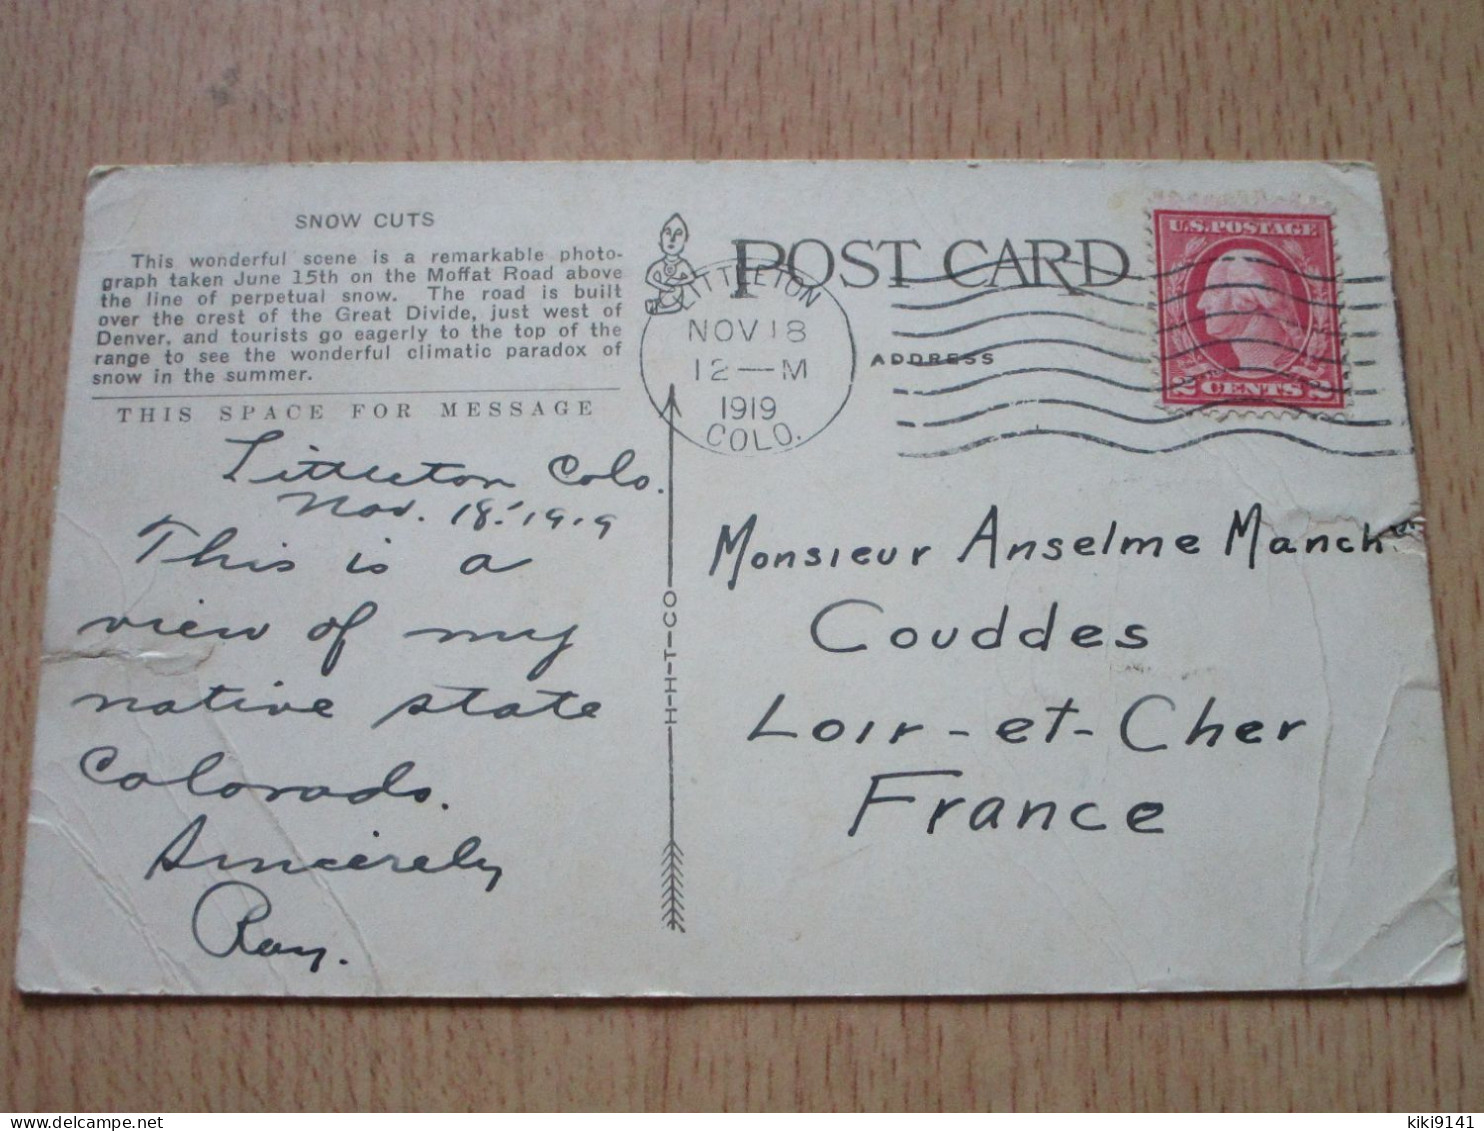 SNOW CUTS
This wonderful scene is a remarkable photo-
graph taken June 15th on the Moffat Road above
the line of perpetual snow. The road is built
over the crest of the Great Divide, just west of
Denver, and tourists go eagerly to the top of the
range to see the wonderful climatic paradox of
snow in the summer.
THIS SPACE FOR MESSAGE
Littleton Colo.
Nov. 18. 1919
This is a
view of my
native state
Colorado.
Sincerely
Ray.
H-H-T-CO
POST CARD
ADDRESS
LITTLETON
NOV 18
12—M
1919
COLO.
U.S. POSTAGE
2 CENTS 2
Monsieur Anselme
Couddes
Loir-et-Cher
France
kiki9141